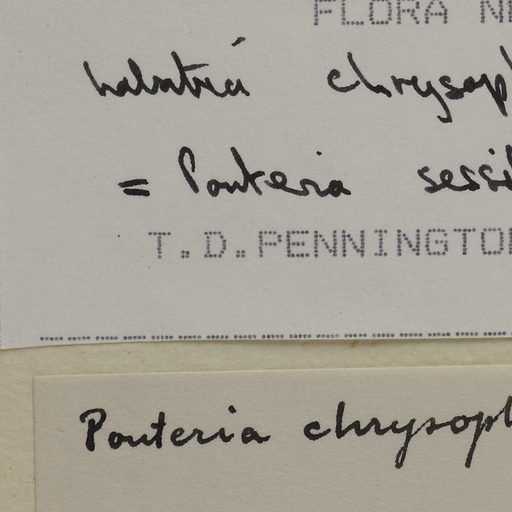 FLORA NE
chrysoph
= Pouteria sessi
T.D.PENNINGTON
Pouteria chrysoph